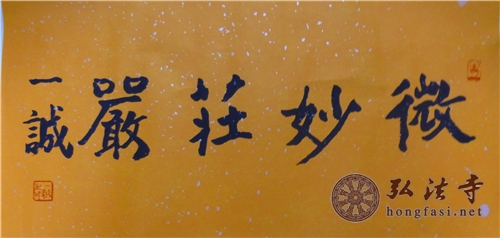 微妙莊嚴
一誠
弘法寺
hongfasi.net